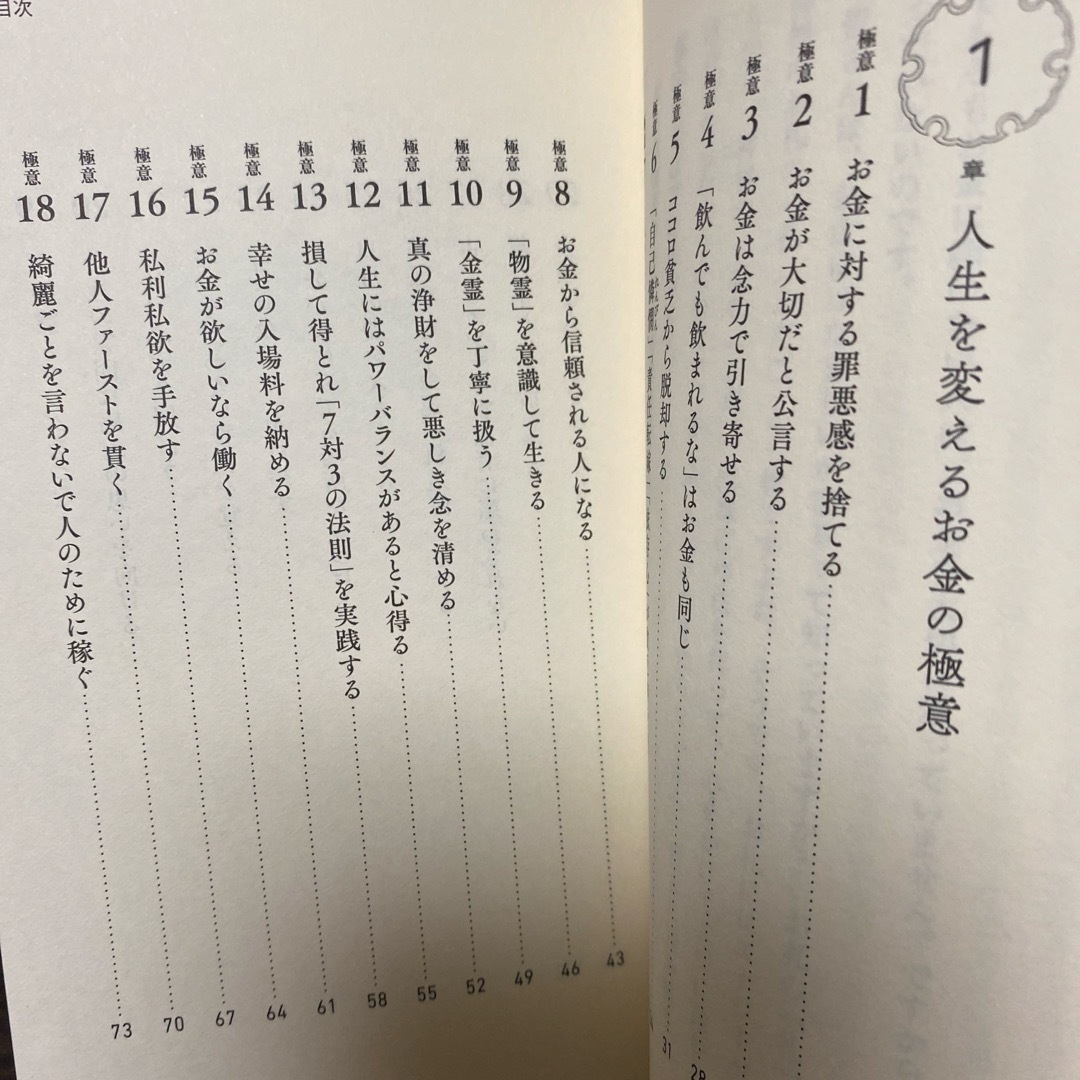 1章 人生を変えるお金の極意
極意1 お金に対する罪悪感を捨てる
極意2 お金が大切だと公言する
極意3 お金は念力で引き寄せる
極意4 「飲んでも飲まれるな」はお金も同じ
極意5 ココロ貧乏から脱却する 31
極意6 「自己憐憫」「責任転嫁」
目次
極意8 お金から信頼される人になる 43
極意9 「物霊」を意識して生きる 46
極意10 「金霊」を丁寧に扱う 49
極意11 真の浄財をして悪しき念を清める 52
極意12 人生にはパワーバランスがあると心得る 55
極意13 損して得とれ「7対3の法則」を実践する 58
極意14 幸せの入場料を納める 61
極意15 お金が欲しいなら働く 64
極意16 私利私欲を手放す 67
極意17 他人ファーストを貫く 70
極意18 綺麗ごとを言わないで人のために稼ぐ 73